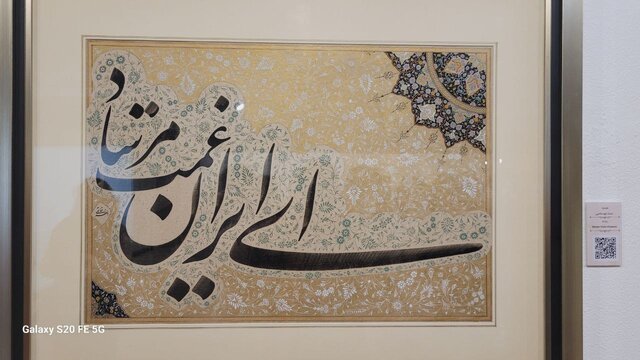 ای ایران غمت مرساد
Galaxy S20 FE 5G